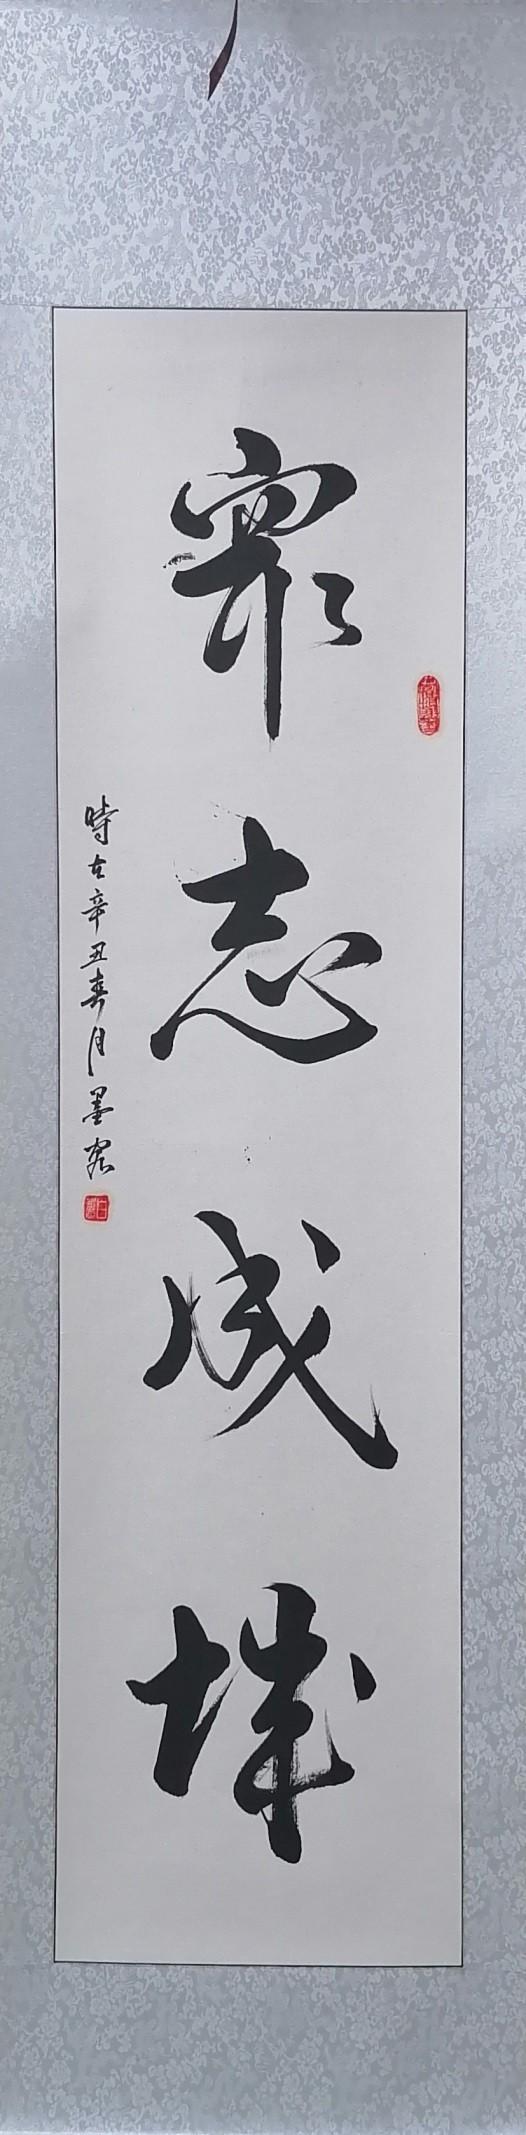 眾志成城
時在辛丑春月墨客